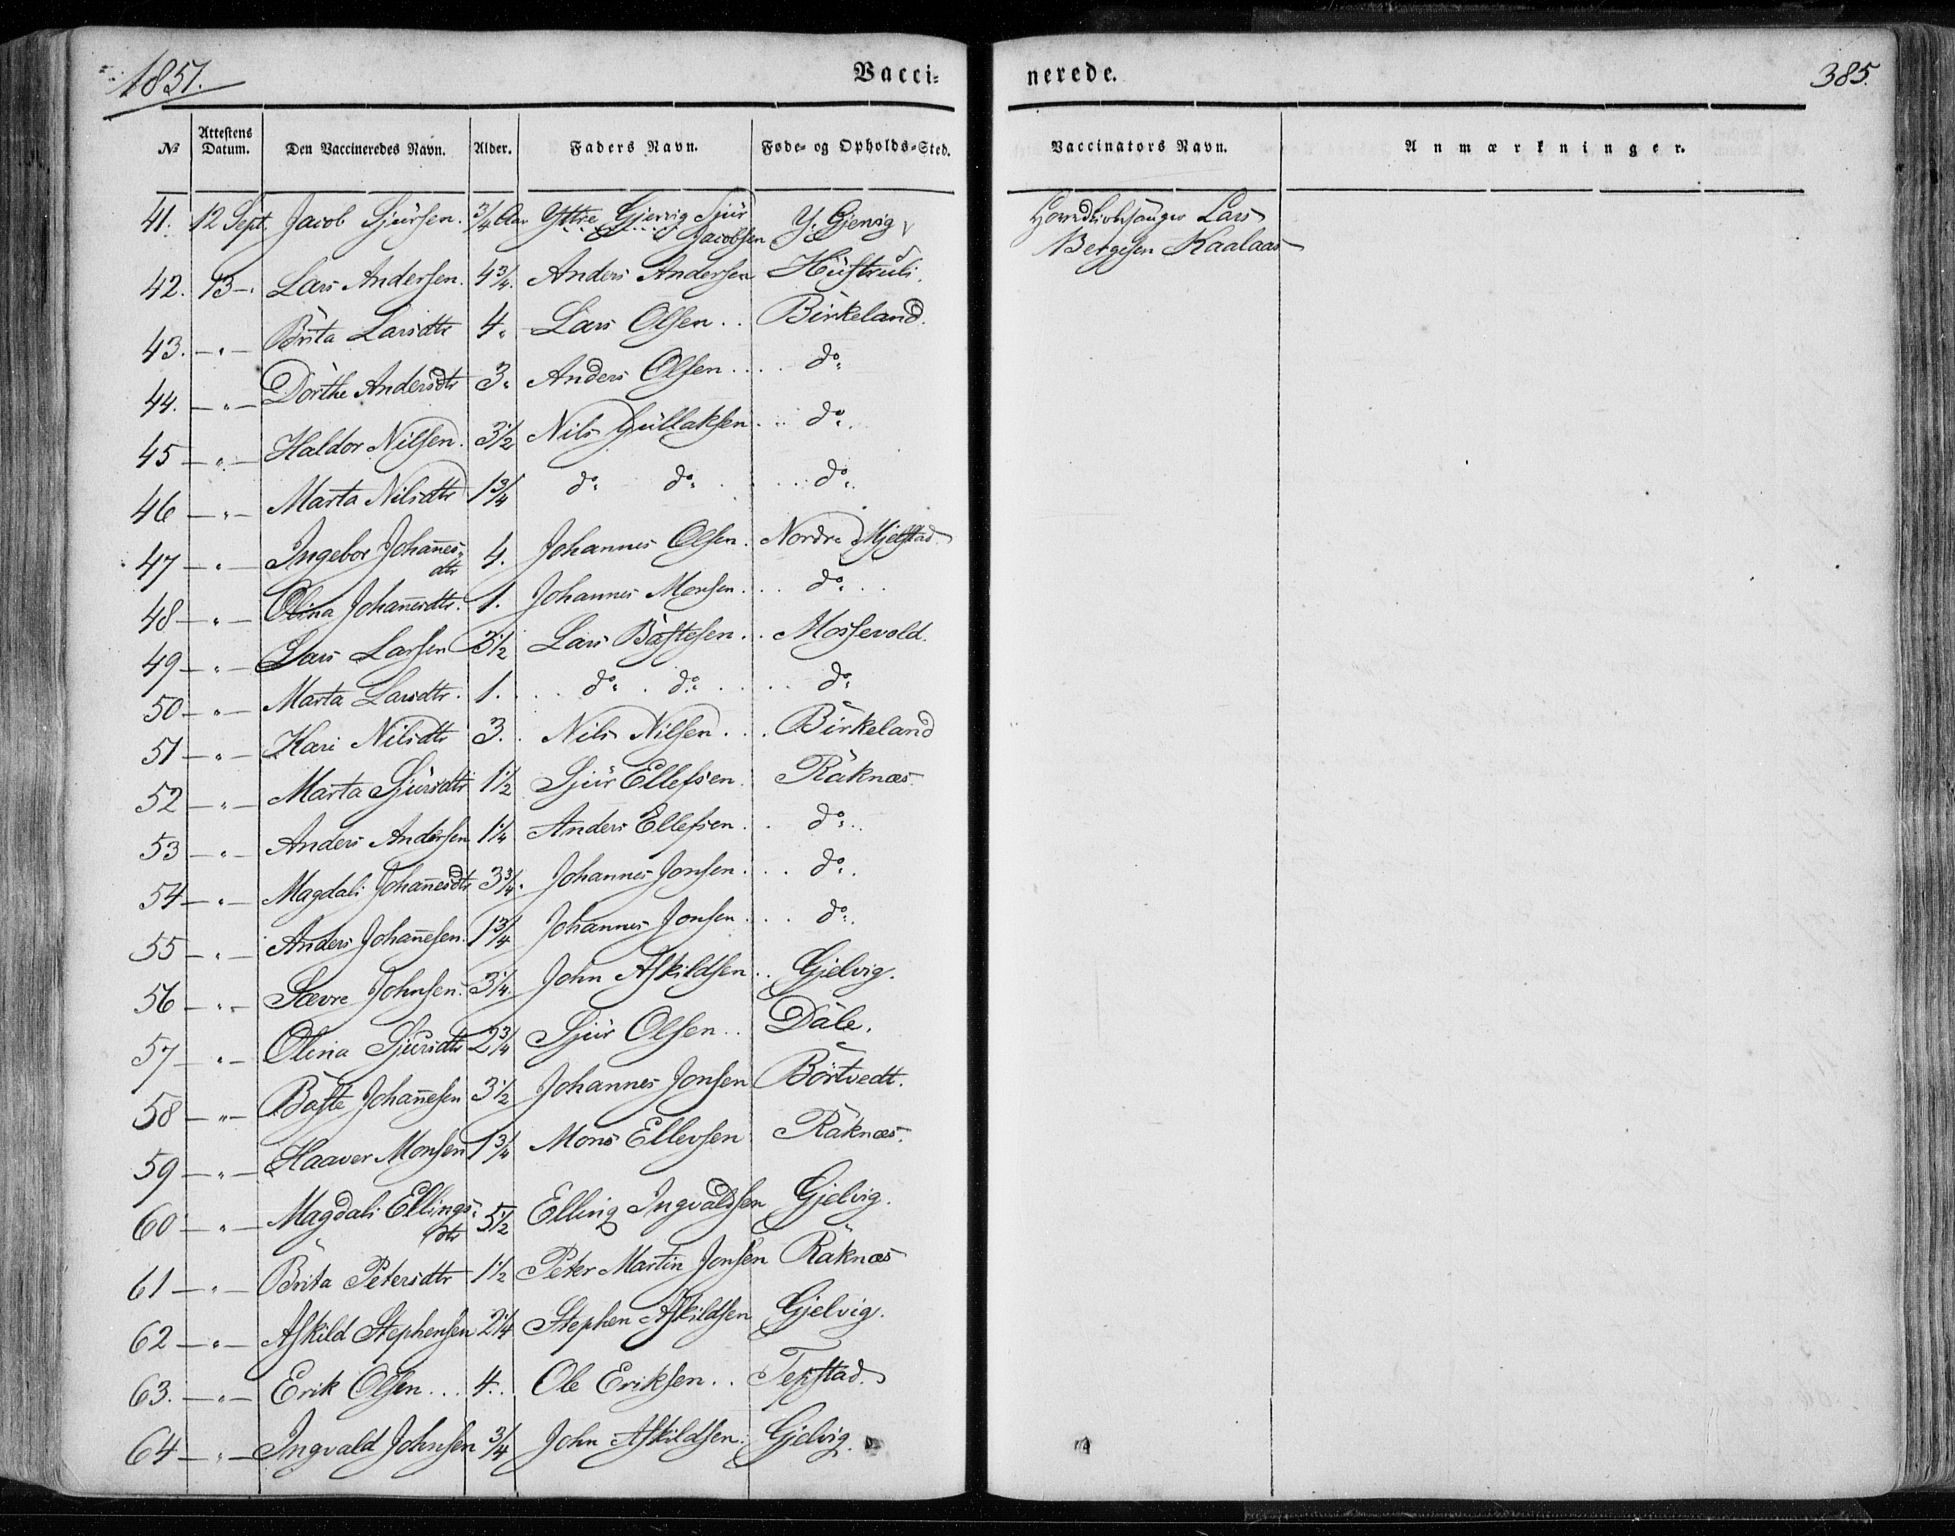 1851.
Vacci-
nerede.
385.
№ Attestens Datum. Den Vaccineredes Navn. Alder. Faders Navn. Føde- og Opholds-Sted. Vaccinators Navn. Anmærkninger.
41. 12 Sept. Jacob Sjursen. 3/4 Aar Yttre Gjervig Sjur Jacobsen Y. Gjervig Lars
Bergesen Kaalaas
42. 13 -. Lars Andersen. 4 3/4. Anders Andersen
43. -"- Brita Larsdtr 4. Lars Olsen.. Birkeland.
44. -"- Dorthe Andersdtr 3. Anders Olsen.... do.
45 -"- Haldor Nilsen. 3 1/2 Nils Gullaksen... do.
46 -"- Marta Nilsdtr 1 3/4 do. do. ... do.
47 -"- Ingebor Johan̄es-dtr 4. Johannes Olsen. Nordre Mjelstad
48 -"- Olina Johan̄esdtr. 1. Johannes Monsen... do...
49 -"- Lars Larsen 3 1/2 Lars Baftesen.. Mossevold.
50 -"- Marta Larsdtr. 1... do. . do. ... do.
51 -"- Kari Nilsdtr 3. . Nils Nilsen... Birkeland
52 -"- Marta Sjursdtr 1 1/2 Sjur Ellefsen. Raknæs.
53 -"- Anders Andersen 1 1/4 Anders Ellefsen.. do..
54 -"- Magdali Johan̄esdtr 3 3/4. Johannes Jonsen... do.
55 -"- Anders Johan̄esen. 1 3/4 Johannes Jonsen... do.
56 -"- Sævre Johnsen. 3 1/4. John Askildsen.. Gjelvig.
57 -"- Olina Sjursdtr 2 3/4 Sjur Olsen.. Dale.
58 -"- Bafte Johan̄esen 3 1/2 Johannes Jonsen Börtvedt.
59 -"- Haaver Monsen 1 3/4 Mons Ellevsen Raknæs.
60 -"- Magdali Ellings-dtr 5 1/2 Elling Ingvaldsen Gjelvig.
61 -"- Brita Petersdtr 1 1/2 Peter Martin Jonsen Raknæs
62 -"- Askild Stephensen 2 1/4 Stephen Askildsen Gjelvig.
63. -"- Erik Olsen... 4.. Ole Eriksen.. Tepstad.
64 -"- Ingvald Johnsen 3/4 John Askildsen. Gjelvig.